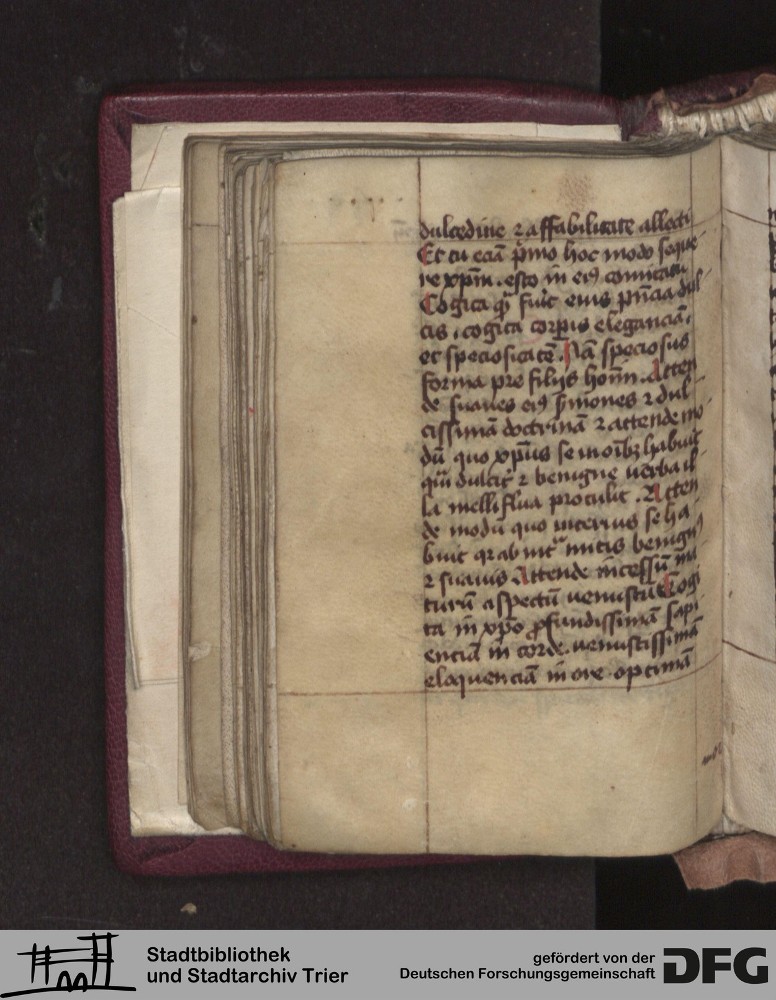 dulcedine ⁊ affabilitate allecti
Et tu eciā p̄mo hoc modo seque
re xp̄m . esto in eiꝰ comitatu
Cogita qͥ fuit eius p̄ncia dul
cis . cogita corpis eleganciā .
et speciositatē . Nā speciosus
forma pre filijs hom̄ . Atten
de suaues eiꝰ s̄mones ⁊ dul
cissimā doctrinā ⁊ attende mo
dū quo xp̄us se in oībꝫ habuit
dulcit̄ ⁊ benigne uerba il
la melliflua protulit . Atten
de modū quo interius se ha
buit qꝛ ab mitis benignꝰ
⁊ suauis Attende incessū ma
turū aspectū uenustū Cogi
ta in xp̄o ꝓfundissimā sapi
enciā in corde . uenustissimā
eloquenciā in ore . optimā
Stadtbibliothek
und Stadtarchiv Trier
gefördert von der
Deutschen Forschungsgemeinschaft
DFG